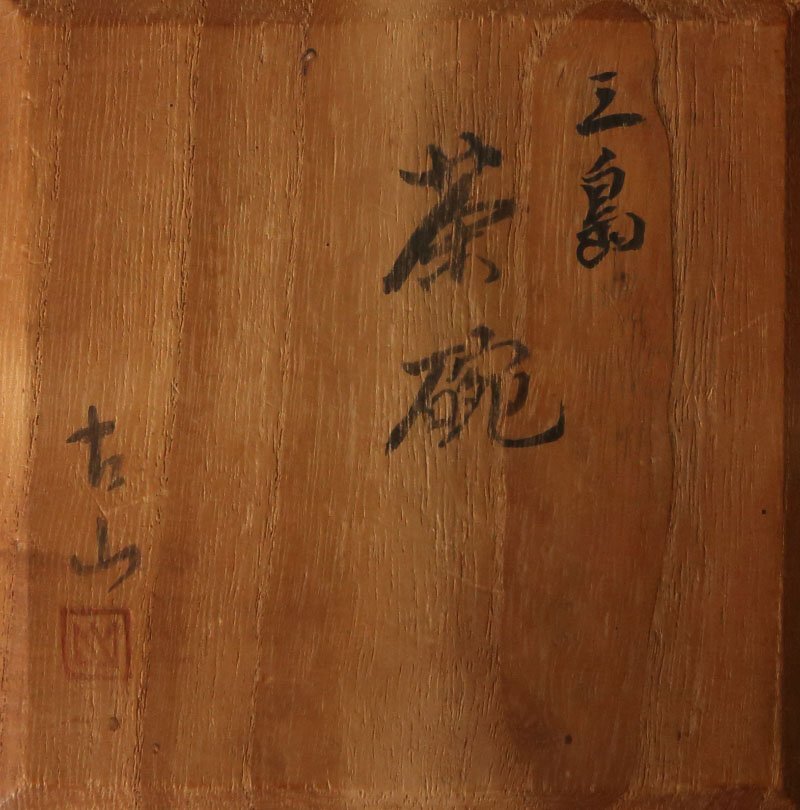 三島
茶碗
古山